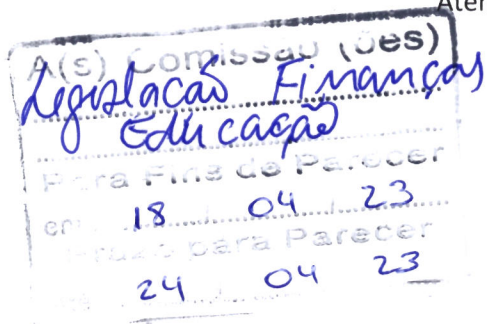 Aten
A(s) Comissão (ões)
Legislação Finanças
Educação
Para Fins de Parecer
em 18 04 23
Prazo para Parecer
24 04 23